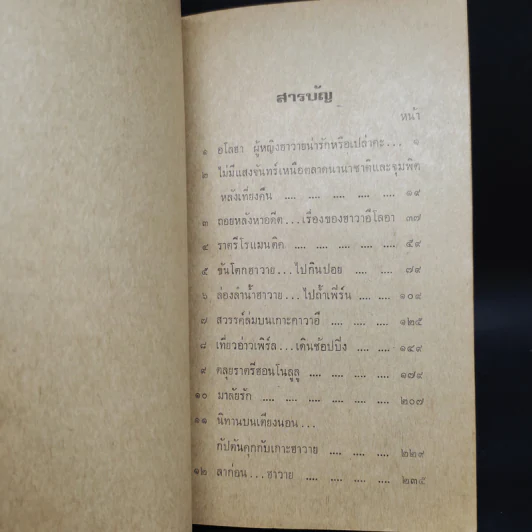 สารบัญ
หน้า
๑ อโลฮา ผู้หญิงฮาวายน่ารักหรือเปล่าคะ... ๑
๒ ไม่มีแสงจันทร์เหนือตลาดนานาชาติและจุมพิต
หลังเที่ยงคืน .... .... .... .... .... ๑๙
๓ ถอยหลังหาอดีต...เรื่องของฮาวายีโลอา ๓๗
๔ ราตรีโรแมนติค .... .... .... .... .... ๕๙
๕ ขันโตกฮาวาย...ไปกินปอย .... .... ๗๙
๖ ล่องลำน้ำฮาวาย...ไปถ้ำเฟิร์น .... .... ๑๐๙
๗ สวรรค์ล่มบนเกาะคาวาอี .... .... .... ๑๒๕
๘ เที่ยวอ่าวเพิร์ล...เดินช้อปปิ้ง .... .... ๑๔๙
๙ ตลุยราตรีฮอนโนลูลู .... .... .... .... ๑๗๙
๑๐ มาลัยรัก .... .... .... .... .... .... ๒๐๗
๑๑ นิทานบนเตียงนอน...
กัปตันคุกกับเกาะฮาวาย .... .... .... ๒๒๙
๑๒ ลาก่อน...ฮาวาย .... .... .... .... ๒๓๕